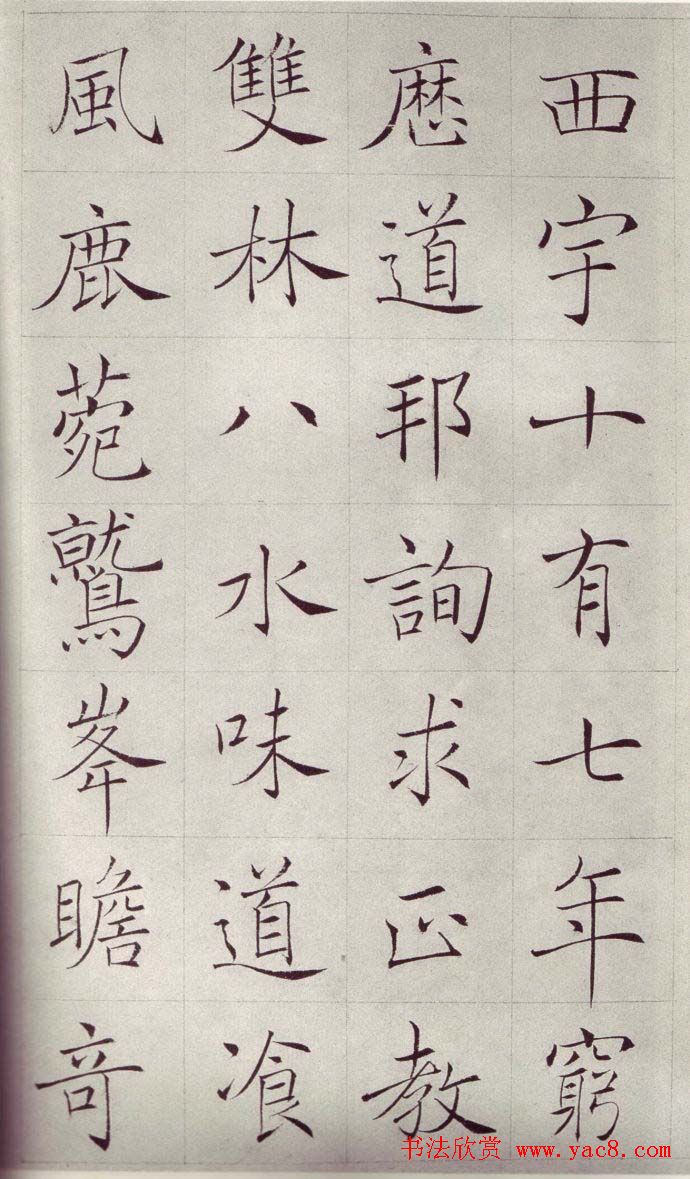 西宇十有七年窮
歷道邦詢求正教
雙林八水味道飡
風鹿菀鷲峯瞻奇
书法欣赏 www.yac8.com